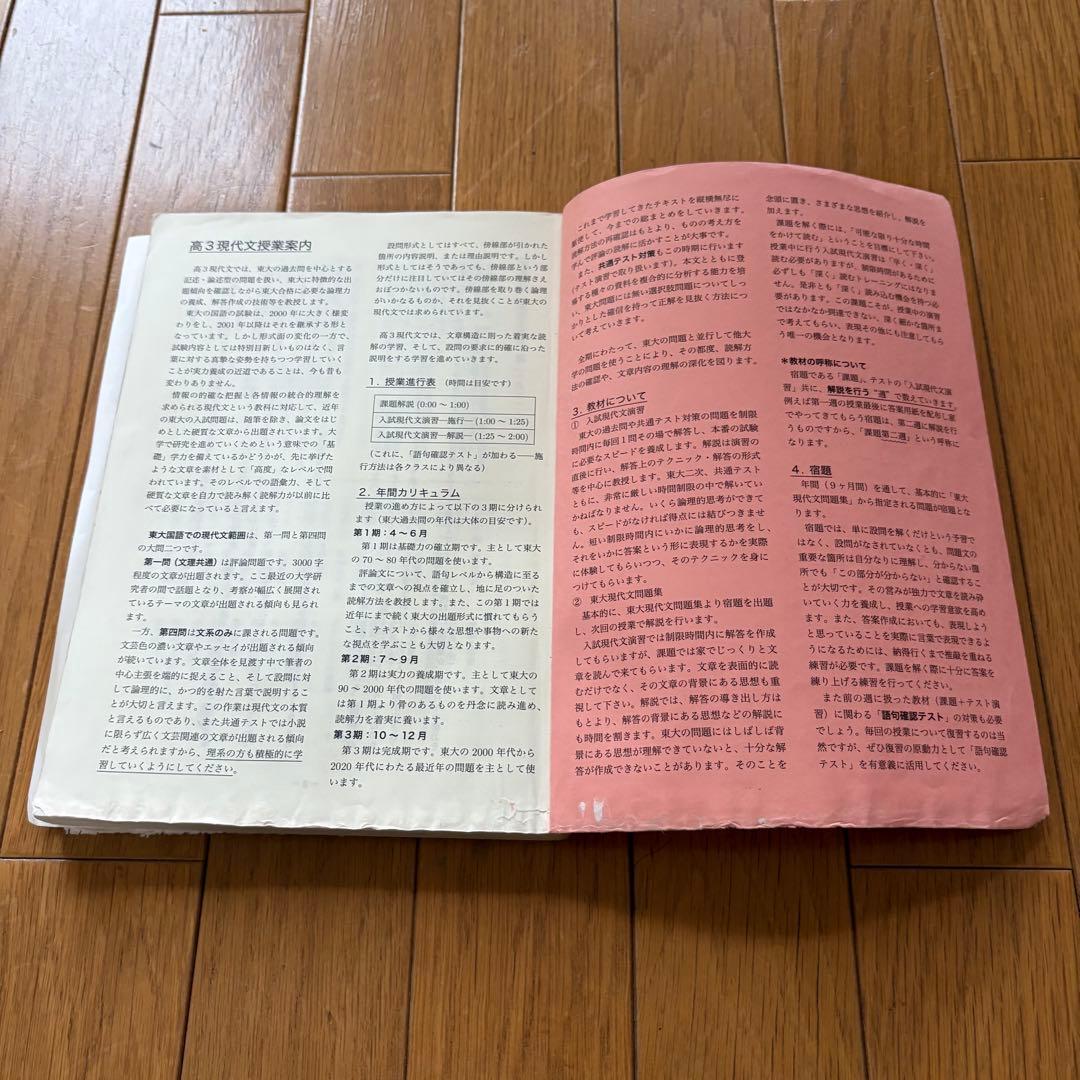 高3現代文授業案内
高3現代文では、東大の過去問を中心とする
記述・論述型の問題を扱い、東大に特徴的な出
題傾向を確認しながら東大合格に必要な論理力
の養成、解答作成の技術等を教授します。
東大の国語の試験は、2000年に大きく様変
わりをし、2001年以降はそれを継承する形と
なっています。しかし形式面の変化の一方で、
試験内容としては特別目新しいものはなく、言
葉に対する真摯な姿勢を持ちつつ学習していく
ことが実力養成の近道であることは、今も昔も
変わりありません。
情報の的確な把握と各情報の統合的理解を
求められる現代文という教科に対応して、近年
の東大の入試問題は、随筆を除き、論文をはじ
めとした硬質な文章から出題されています。大
学で研究を進めていくためという意味での「基
礎」学力を備えているかどうかが、先に挙げた
ような文章を素材として「高度」なレベルで問
われています。そのレベルでの語彙力、そして
硬質な文章を自力で読み解く読解力が以前に比
べて必要になっていると言えます。
東大国語での現代文範囲は、第一問と第四問
の大問二つです。
第一問（文理共通）は評論問題です。3000字
程度の文章が出題されます。ここ最近の大学研
究者の間で話題となり、考察が幅広く展開され
ているテーマの文章が出題される傾向も見られ
ます。
一方、第四問は文系のみに課される問題です。
文芸色の濃い文章やエッセイが出題される傾向
が続いています。文章全体を見渡す中で筆者の
中心主張を端的に捉えること、そして設問に対
して論理的に、かつ的を射た言葉で説明するこ
とが大切と言えます。この作業は現代文の本質
と言えるものであり、また共通テストでは小説
に限らず広く文芸関連の文章が出題される傾向
だと考えられますから、理系の方も積極的に学
習していくようにしてください。
設問形式としてはすべて、傍線部が引かれた
箇所の内容説明、または理由説明です。しかし
形式としてはそうであっても、傍線部という部
分だけに注目していてはその傍線部の理解さえ
おぼつかないものです。傍線部を取り巻く論理
がいかなるものか、それを見抜くことが東大の
現代文では求められています。
高3現代文では、文章構造に則った着実な読
解の学習、そして、設問の要求に的確に沿った
説明をする学習を進めていきます。
1. 授業進行表 （時間は目安です）
課題解説（0:00～1:00）
入試現代文演習―施行―（1:00～1:25）
入試現代文演習―解説―（1:25～2:00）
（これに、「語句確認テスト」が加わる――施
行方法は各クラスにより異なる）
2. 年間カリキュラム
授業の進め方によって以下の3期に分けられ
ます（東大過去問の年代は大体の目安です）。
第1期：4～6月
第1期は基礎力の確立期です。主として東大
の70～80年代の問題を使います。
評論文について、語句レベルから構造に至る
までの文章への視点を確立し、地に足のついた
読解方法を教授します。また、この第1期では
近年にまで続く東大の出題形式に慣れてもらう
こと、テキストから様々な思想や事物への新た
な視点を学ぶことも大切となります。
第2期：7～9月
第2期は実力の養成期です。主として東大の
90～2000年代の問題を使います。文章として
は第1期より骨のあるものを丹念に読み進め、
読解力を着実に養います。
第3期：10～12月
第3期は完成期です。東大の2000年代から
2020年代にわたる最近年の問題を主として使
います。
これまで学習してきたテキストを縦横無尽に
駆使して、今までの総まとめをしていきます。
読解方法の再確認はもとより、ものの考え方を
学んで評論の読解に活かすことが大事です。
また、共通テスト対策もこの時期に行います
（テスト演習で取り扱います）。本文とともに登
場する種々の資料を複合的に分析する能力を培
い、東大問題には無い選択肢問題についてしっ
かりとした確信を持って正解を見抜く方法につ
いて考えていきます。
全期にわたって、東大の問題と並行して他大
学の問題を使うことにより、その都度、読解方
法の確認や、文章内容の理解の深化を図ります。
3. 教材について
① 入試現代文演習
東大の過去問や共通テスト対策の問題を制限
時間内に毎回1問その場で解答し、本番の試験
に必要なスピードを養成します。解説は演習の
直後に行い、解答上のテクニック・解答の形式
等を中心に教授します。東大二次、共通テスト
ともに、非常に厳しい時間制限の中で解いてい
かねばなりません。いくら論理的思考ができて
も、スピードがなければ得点には結びつきませ
ん。短い制限時間内にいかに論理的思考をし、
それをいかに答案という形に表現するかを実際
に体験してもらいつつ、そのテクニックを身に
つけてもらいます。
② 東大現代文問題集
基本的に、東大現代文問題集より宿題を出題
し、次回の授業で解説を行います。
入試現代文演習では制限時間内に解答を作成
してもらいますが、課題では家でじっくりと文
章を読んで来てもらいます。文章を表面的に読
むだけでなく、その文章の背景にある思想も重
視して下さい。解説では、解答の導き出し方は
もとより、解答の背景にある思想などの解説に
も時間を割きます。東大の問題にはしばしば背
景にある思想が理解できていないと、十分な解
答が作成できないことがあります。そのことを
念頭に置き、さまざまな思想を紹介し、解説を
加えます。
課題を解く際には、「可能な限り十分な時間
をかけて読む」ということを目標にして下さい。
授業中に行う入試現代文演習は「早く・深く」
読む必要がありますが、制限時間があるために
必ずしも「深く」読むトレーニングにはなりま
せん。是非とも「深く」読み込む機会を持つ必
要があります。この課題こそが、授業中の演習
ではなかなか到達できない、深く細かな箇所ま
で考えてもらい、表現その他にも注意してもら
う唯一の機会となります。
＊教材の呼称について
宿題である「課題」、テストの「入試現代文演
習」共に、解説を行う“週”で数えていきます。
例えば第一週の授業最後に答案用紙を配布し家
でやってきてもらう宿題は、第二週に解説を行
うのですから、「課題第二週」という呼称に
なります。
4. 宿題
年間（9ヶ月間）を通して、基本的に「東大
現代文問題集」から指定される問題が宿題とな
ります。
宿題では、単に設問を解くだけという予習で
はなく、設問がなされていなくとも、問題文の
重要な箇所は自分なりに理解し、分からない箇
所でも「この部分が分からない」と確認するこ
とが大切です。その営みが独力で文章を読み砕
いていく力を養成し、授業への学習意欲を高め
ます。また、答案作成においても、表現しよう
と思っていることを実際に言葉で表現できるよ
うになるためには、納得行くまで推敲を重ねる
練習が必要です。課題を解く際に十分に答案を
練り上げる練習を行ってください。
また前の週に扱った教材（課題＋テスト演
習）に関わる「語句確認テスト」の対策も必要
でしょう。毎回の授業について復習するのは当
然ですが、ぜひ復習の原動力として「語句確認
テスト」を有意義に活用してください。